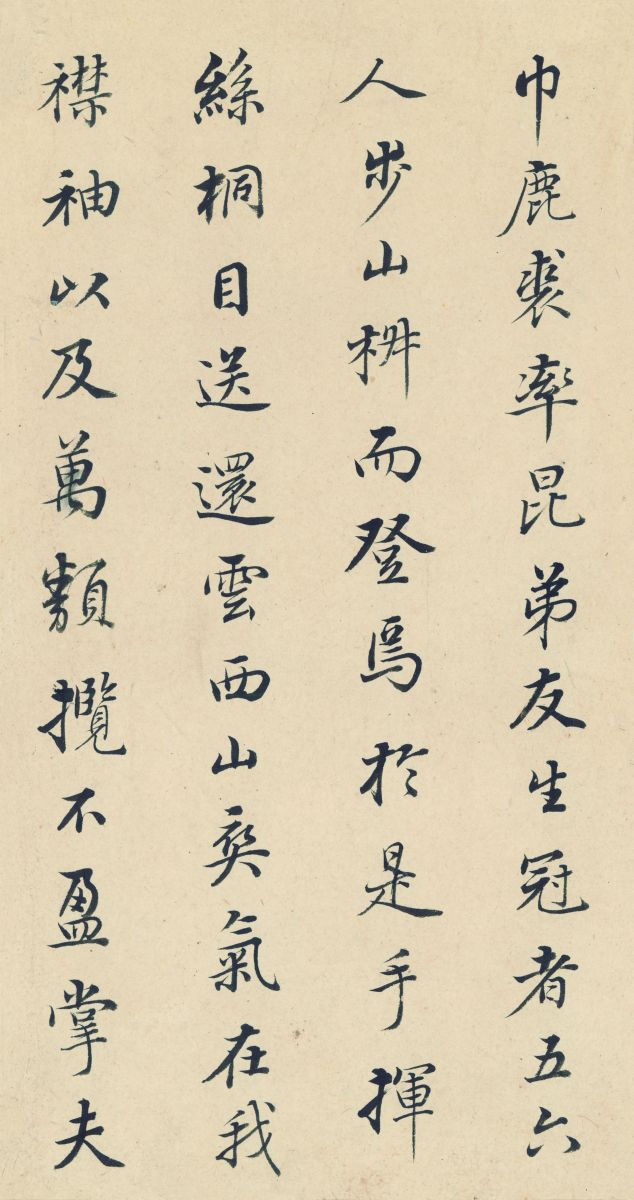 巾鹿裘率昆弟友生冠者五六
人步山椒而登焉於是手揮
絲桐目送還雲西山爽氣在我
襟袖以及萬類攬不盈掌夫